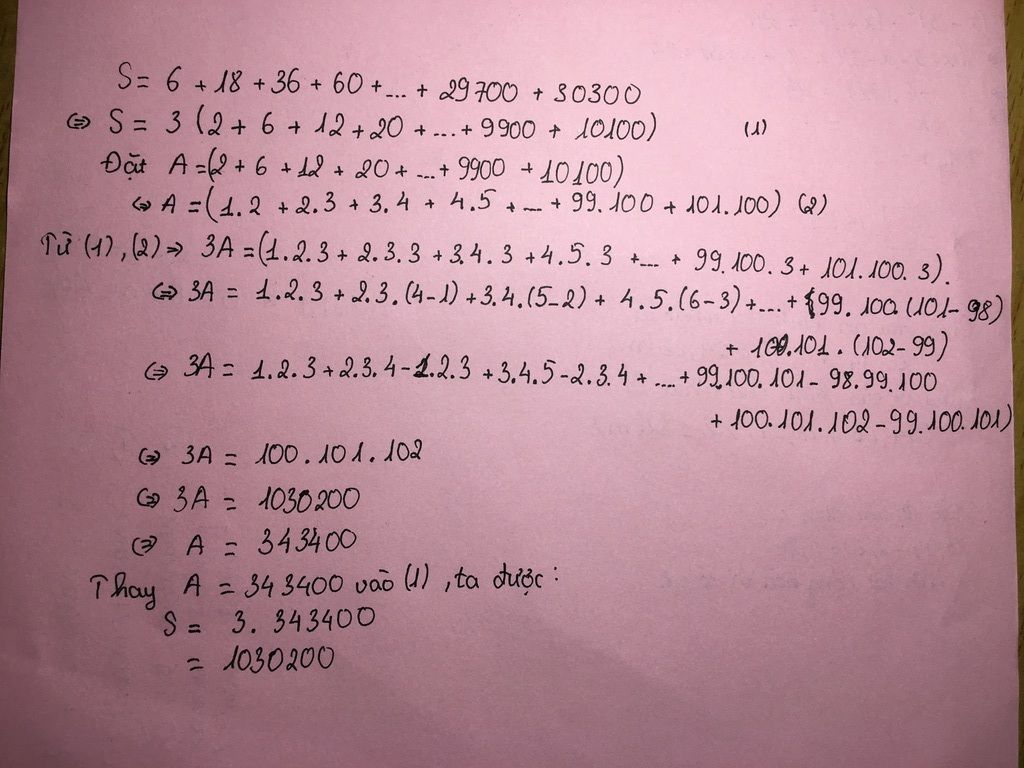 S = 6 + 18 + 36 + 60 + ... + 29700 + 30300
⇔ S = 3 (2 + 6 + 12 + 20 + ... + 9900 + 10100) (1)
Đặt A = (2 + 6 + 12 + 20 + ... + 9900 + 10100)
⇔ A = (1.2 + 2.3 + 3.4 + 4.5 + ... + 99.100 + 101.100) (2)
Từ (1), (2) ⇒ 3A = (1.2.3 + 2.3.3 + 3.4.3 + 4.5.3 + ... + 99.100.3 + 101.100.3).
⇔ 3A = 1.2.3 + 2.3.(4-1) + 3.4.(5-2) + 4.5.(6-3) + ... + 99.100.(101-98)
+ 100.101.(102-99)
⇔ 3A = 1.2.3 + 2.3.4 - 1.2.3 + 3.4.5 - 2.3.4 + .... + 99.100.101 - 98.99.100
+ 100.101.102 - 99.100.101)
⇔ 3A = 100.101.102
⇔ 3A = 1030200
⇔ A = 343400
Thay A = 343400 vào (1), ta được:
S = 3. 343400
= 1030200